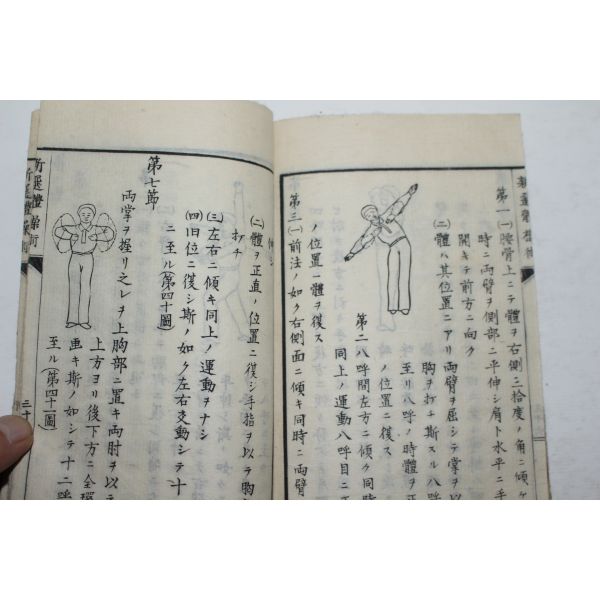 第一(一)腰骨上ニテ體ヲ右側三拾度ノ角ニ傾ケ
時ニ兩臂ヲ側部ニ平伸シ肩ト水平ニ手
開キ前方ニ向ク
(二)體ハ其位置ニアリ兩臂ヲ屈シテ掌ヲ以
胸ヲ打チ斯スル八呼
至リ八呼ノ時體ヲ正
ノ位置ニ復ス
第二八呼間左方ニ傾ク同時
同上ノ運動八呼目ニ正
ノ位置ニ體ヲ復ス
第三(一)前法ノ如ク右側面ニ傾キ同時ニ兩臂
(二)體ヲ正直ノ位置ニ復シ手指ヲ以テ胸
打チ
(三)左右ニ傾キ同上ノ運動ヲナシ
(四)旧位ニ復シ斯ノ如ク左右交動シテ十
二至ル(第四十圖)
第七節
兩掌ヲ握リ之レヲ上胸部ニ置キ兩肘ヲ以テ
上方ヨリ後下方ニ全環
画キ斯ノ如シテ十二呼
至ル(第四十一圖)
新選體操術
三十